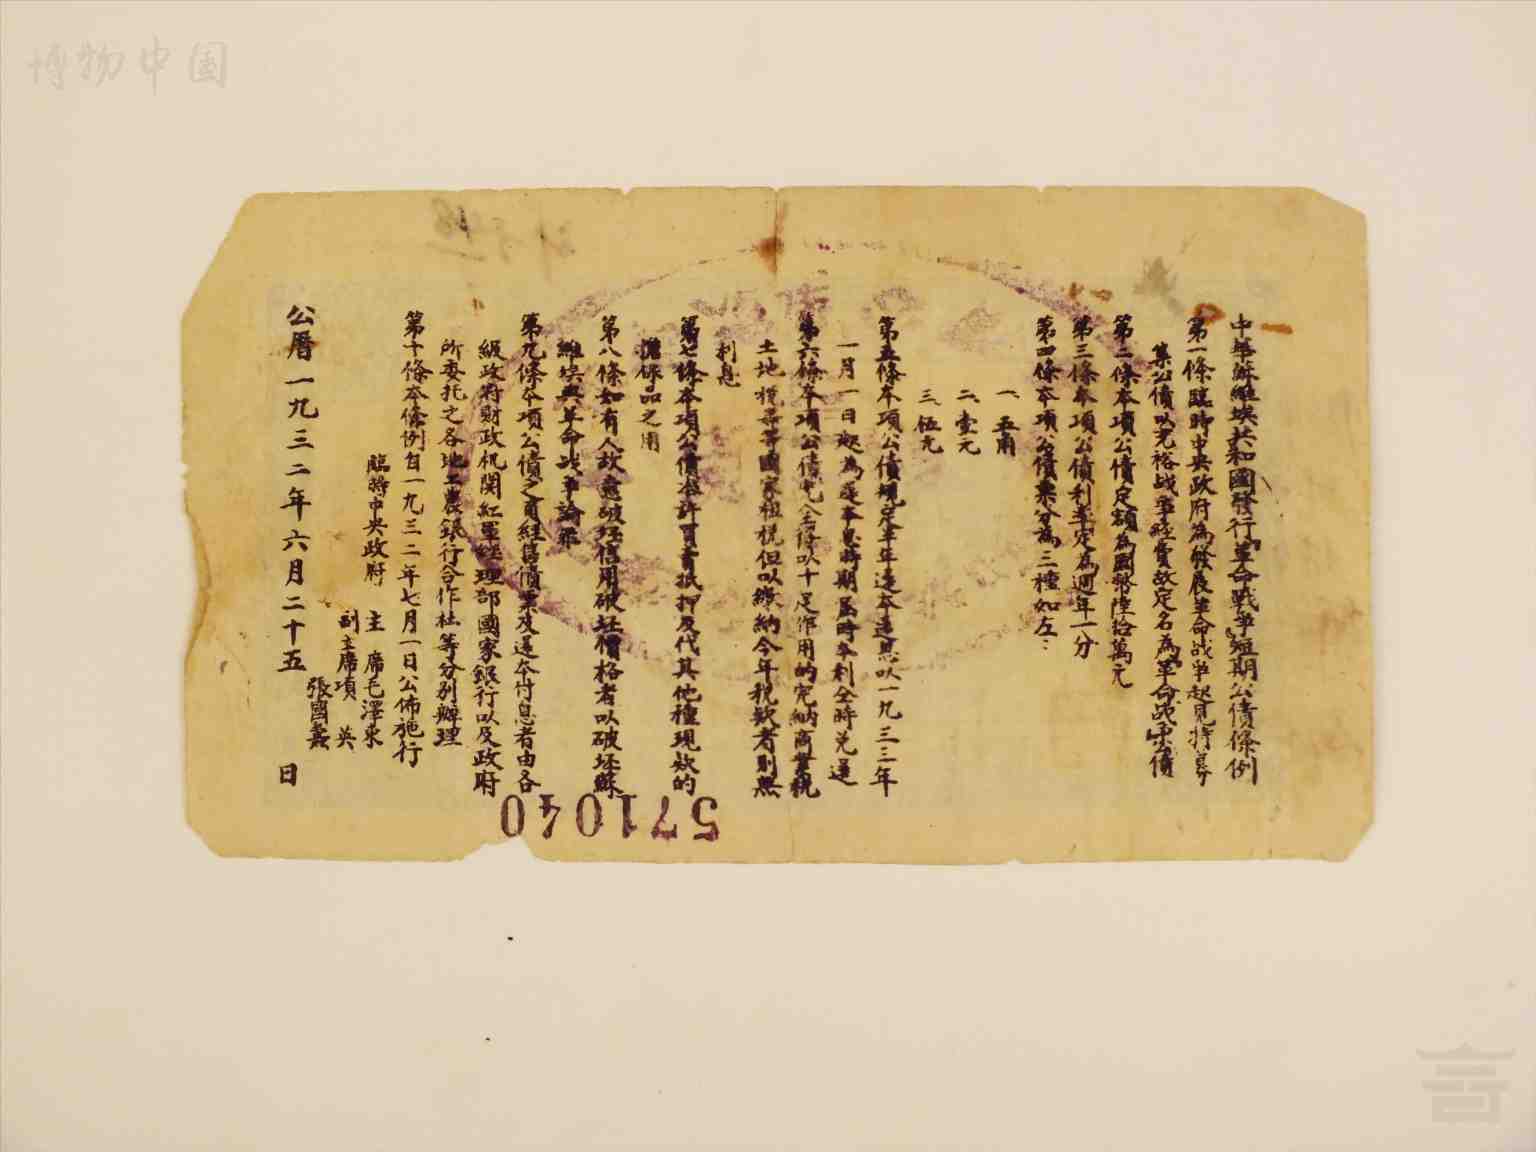 博物中国
中華蘇維埃共和國發行革命戰爭短期公債條例
第一條臨時中央政府為發展革命战争起見特募
集公債以充裕战争經費故定名為革命战争公債
第二條本項公債定額為國幣陸拾萬元
第三條本項公債利率定為週年一分
第四條本項公債票分為三種如左：
一、五角
二、壹元
三、伍元
第五條本項公債規定半年還本還息以一九三三年
一月一日起為還本息時期屆時本利全時兑還
第六條本項公債完全得以十足作用的完納商業税
土地税等等國家租税但以繳納今年税欵者則無
利息
第七條本項公債准許買賣抵押及代其他種現欵的
擔保品之用
第八條如有人故意破坯信用破坯價格者以破坯蘇
維埃與革命战争論罪
第九條本項公債之賣經售債票及還本付息者由各
級政府財政机関紅軍經理部國家銀行以及政府
所委托之各地工農銀行合作社等分别辦理
第十條本條例自一九三二年七月一日公佈施行
臨時中央政府 主 席毛澤東
副主席項 英
張國燾
公曆一九三二年六月二十五 日
571040